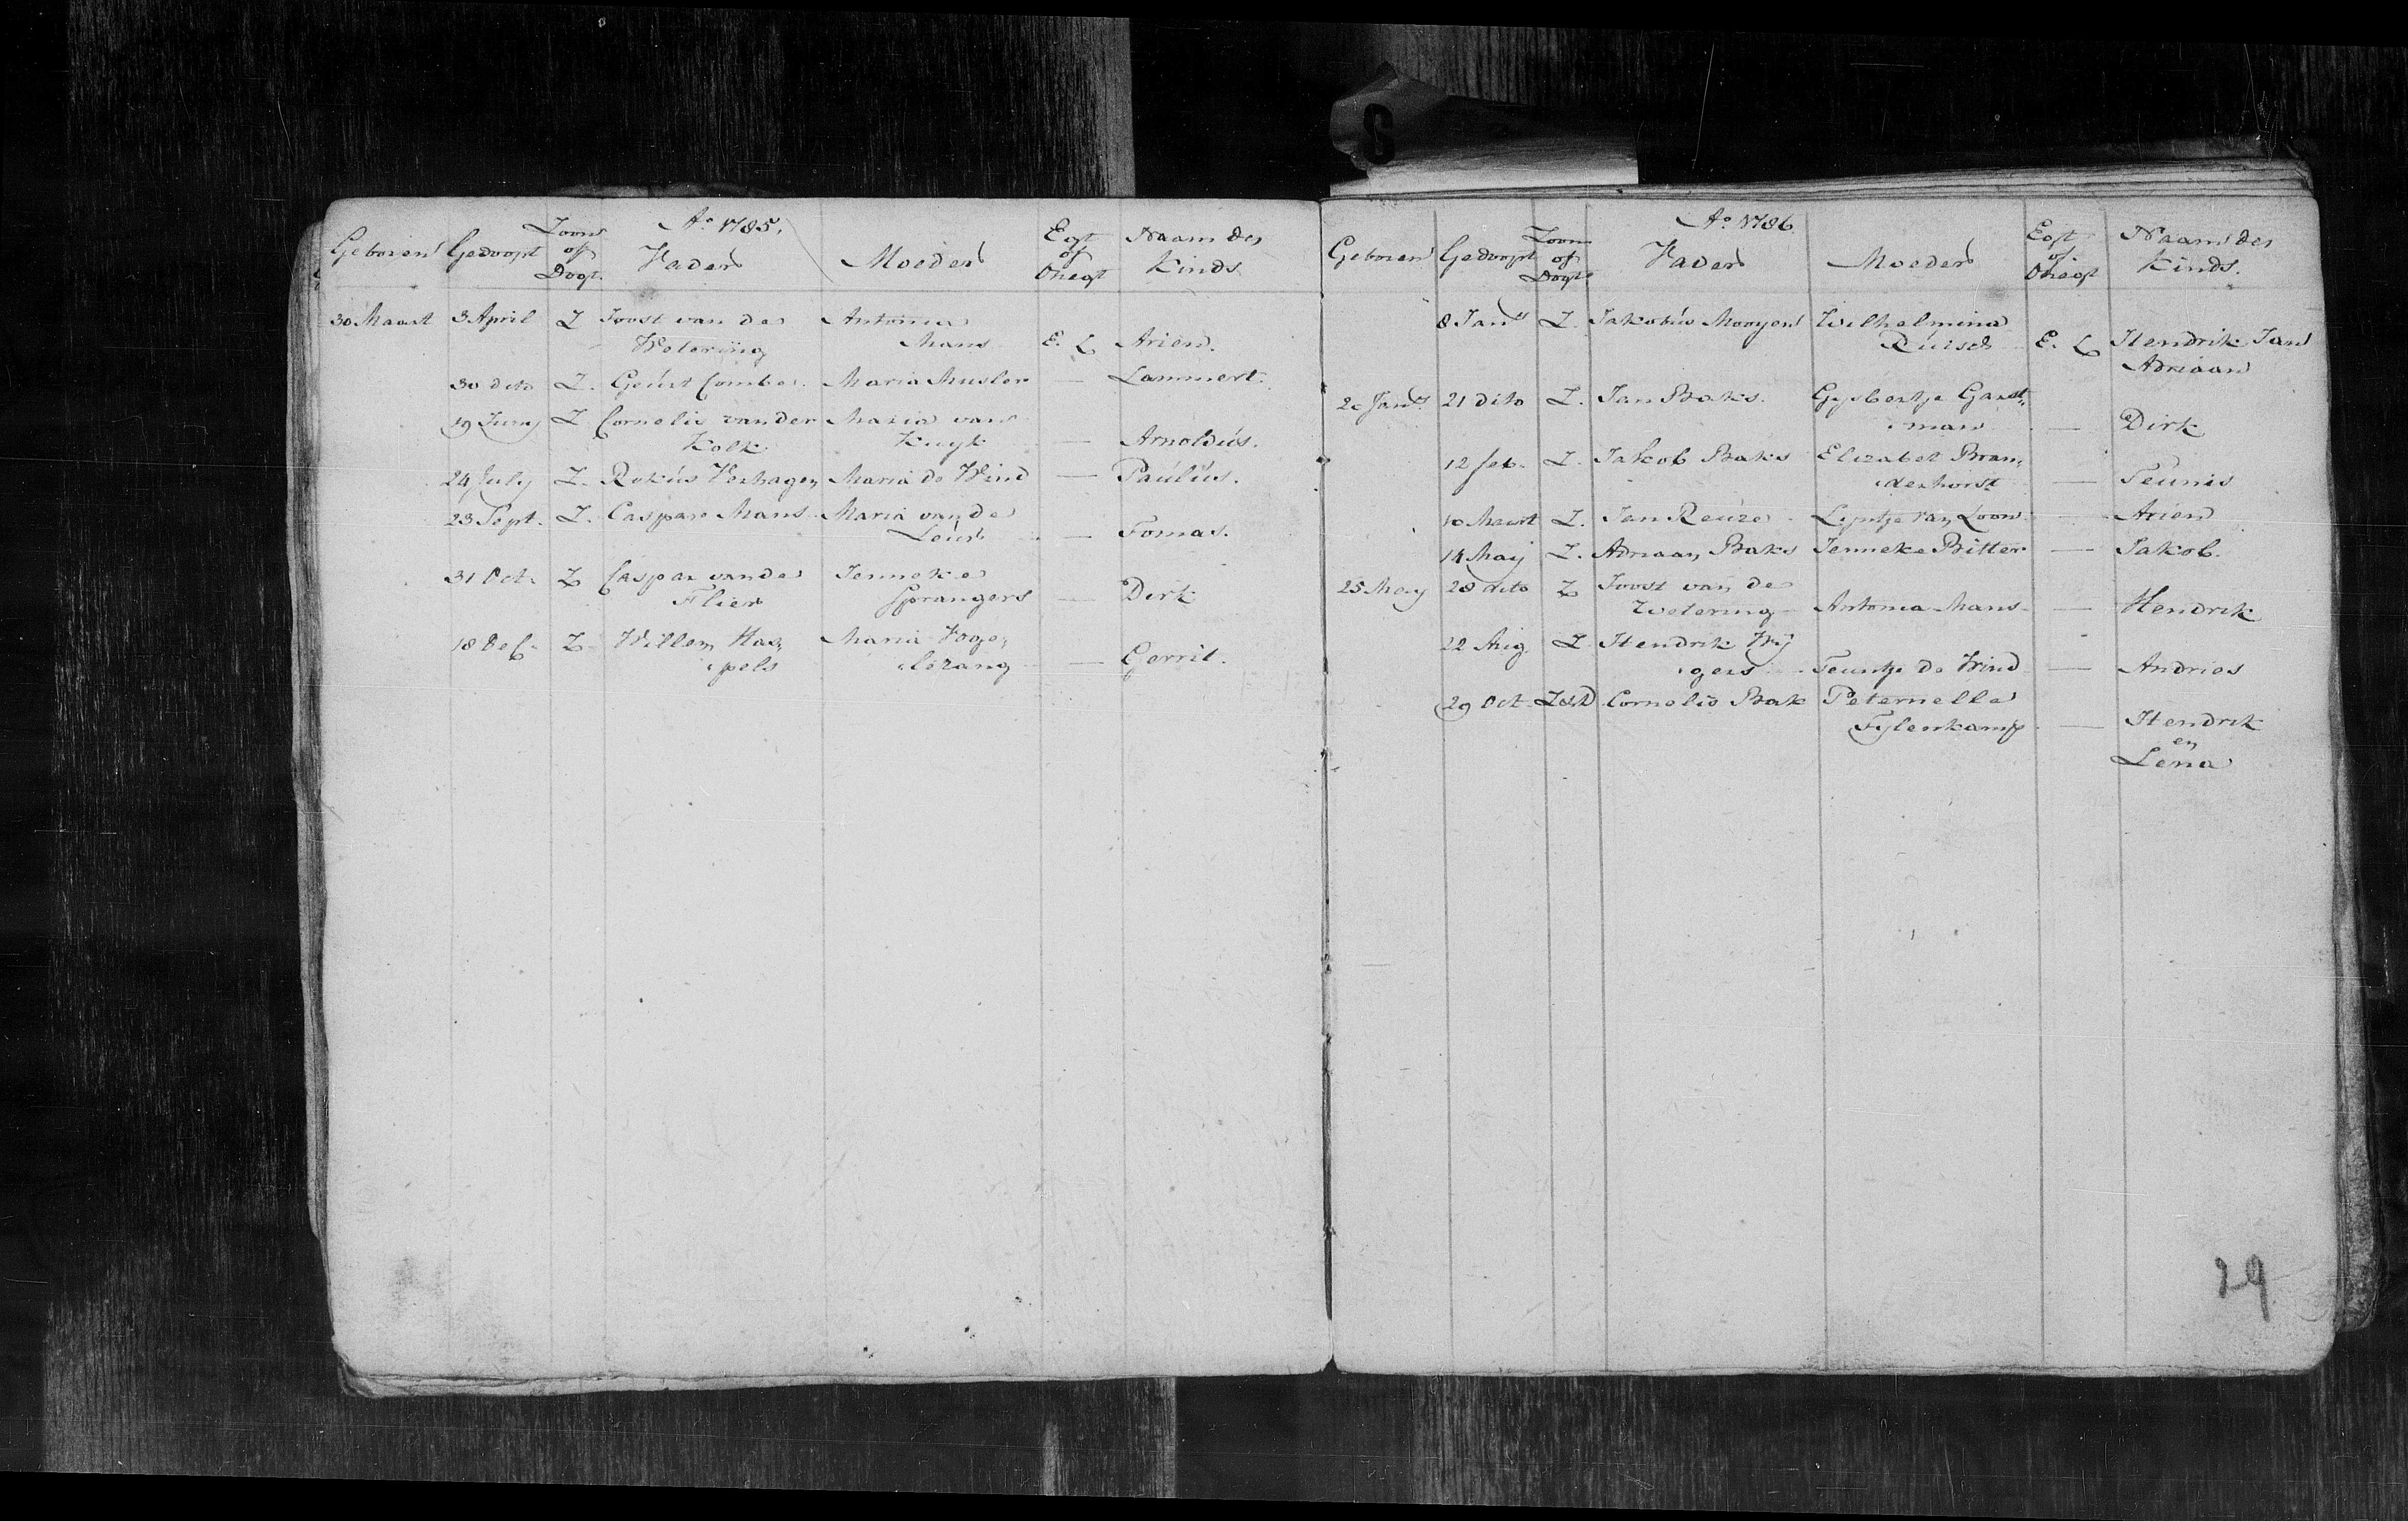 Ao 1785.
Geboren Gedoopt Zoon of Dogt. Vader Moeder Egt of Onegt Naam des Kinds.
30 Maart 3 April Z Joost van de Antonia
Wetering Mans E. L Arien.
30 dito Z. Geurt Combe Maria Musler — Lammert.
19 Juny Z Cornelis van der Maria van
Kolk Kuyk — Arnoldús.
24 July Z. Rokús Verhagen Maria de Wind — Paúlús.
23 Sept. Z. Caspar Mans Maria van de
Leúr — Tomas.
31 Oct. Z Caspar van de Jenneke
Flier Sprangers — Dirk
18 Dec. Z Willem Has„ Maria Voge„
„pels „lezang — Gerrit.
Ao 1786.
Geboren Gedoopt Zoon of Dogt. Vader Moeder Egt of Onegt Naam des Kinds.
8 Jan. Z. Jakobús Mooyen Wilhelmina
Rúisch E. L Hendrik Jan
Adriaan
Jan. 21 dito Z. Jan Baks. Gysbertje Gaast„
„man — Dirk
12 feb. Z. Jakob Baks Elizabet Bran„
„derhorst — Teúnis
10 Maart Z. Jan Reúze Lyntje van Loon — Arien
14 May Z. Adriaan Baks Jenneke Bitter — Jakob.
25 May 28 dito Z Joost van de
Wetering Antonia Mans — Hendrik
22 Aug. Z Hendrik Wij
„gers Teuntje de Wind — Andries
29 Oct. Z & D Cornelis Bak Peternella
Tylenkamp — Hendrik
en
Lena
29